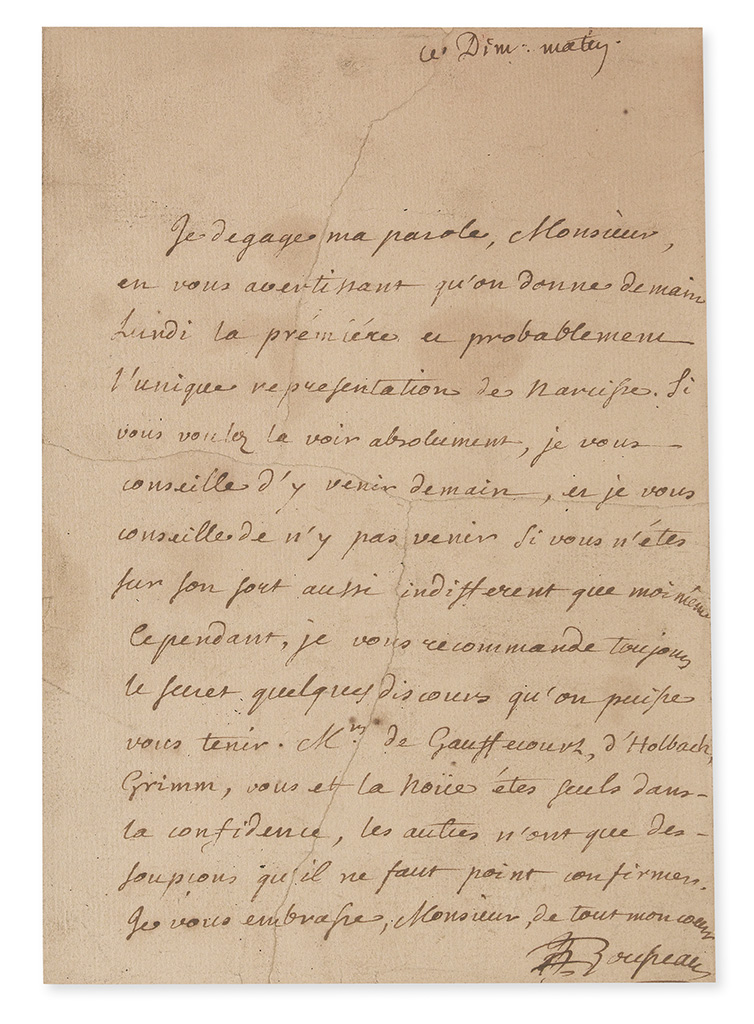 ce Dim: matin
Je degage ma parole, Monsieur,
en vous avertissant qu'on donne demain
Lundi la prémiére et probablement
l'unique representation de Narcisse. Si
vous voulez la voir absolument, je vous
conseille d'y venir demain, et je vous
conseille de n'y pas venir si vous n'étes
sur son sort aussi indifferent que moi même
Cependant, je vous recommande toujours
le secret quelques discours qu'on puisse
vous tenir. Mrs de Gauffecourt, d'Holbach,
Grimm, vous et la Noüe étes seuls dans
la confidence, les autres n'ont que des
soupçons qu'il ne faut point confirmer.
Je vous embrasse, Monsieur, de tout mon cœur
JJRousseau